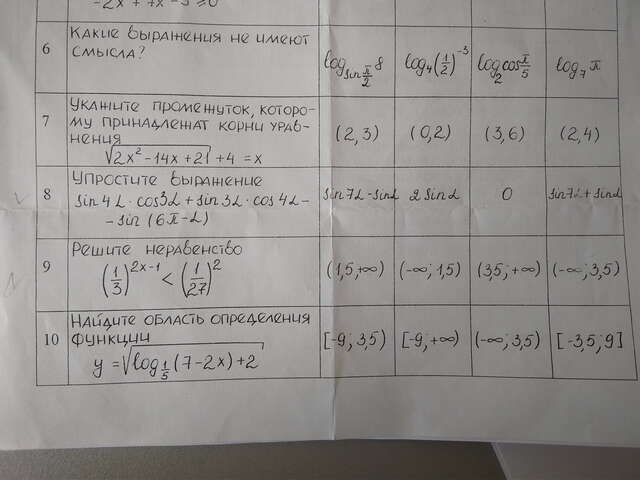 -2x² + 7x - 5 ≥ 0
6 Какие выражения не имеют смысла? log_{sin π/2} 8 log₄(1/2)⁻³ log₂cos π/5 log₇ π
7 Укажите промежуток, которо-
му принадлежат корни урав-
нения
√(2x² - 14x + 21) + 4 = x (2, 3) (0, 2) (3, 6) (2, 4)
8 Упростите выражение
sin 4α · cos3α + sin 3α · cos 4α -
- sin (6π - α) sin7α - sinα 2 sinα 0 sin7α + sinα
9 Решите неравенство
(1/3)^{2x-1} < (1/27)² (1,5, +∞) (-∞; 1,5) (3,5; +∞) (-∞; 3,5)
10 Найдите область определения
функции
y = √(log_{1/5} (7 - 2x) + 2) [-9; 3,5) [-9; +∞) (-∞; 3,5) [-3,5; 9]